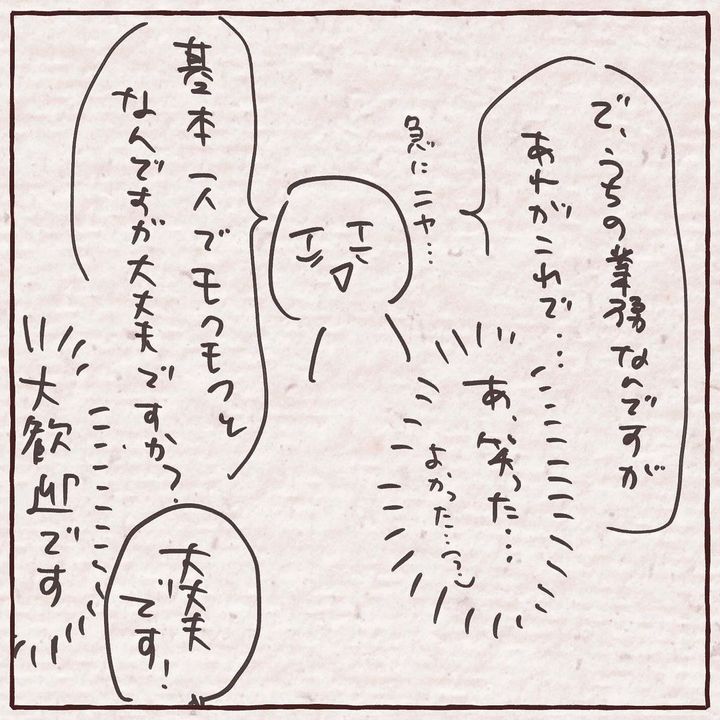 で、うちの業務なんですが
あれがこれで…
急にニャ…
あ、笑った…
よかった…(?)
基本一人でモクモクと
なんですが大丈夫ですか?
大丈夫
です!
大歓迎です